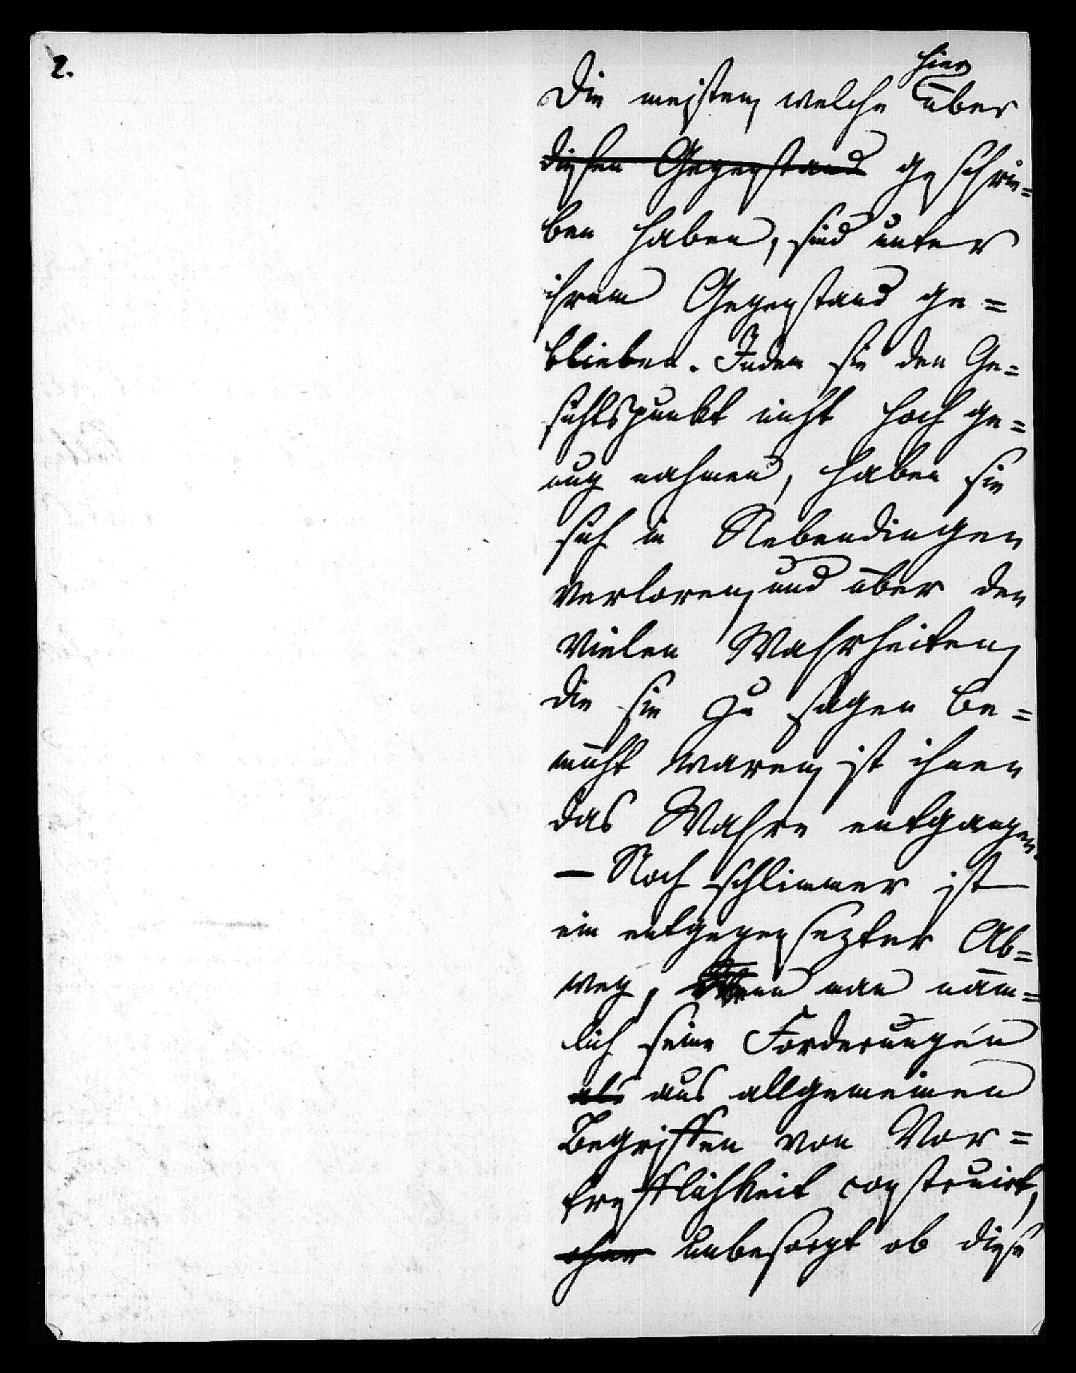 2.
hier
Die meisten, welche über
diesen Gegenstand geschrie=
ben haben, sind unter
ihrem Gegenstand ge=
blieben. Indem sie den Ge=
sichtspunkt nicht hoch ge=
nug nahmen, haben sie
sich in Nebendingen
verloren, und über den
vielen Wahrheiten,
die sie zu sagen be=
müht waren, ist ihnen
das Wahre entgangen.
— Noch schlimmer ist
ein entgegengesezter Ab=
weg, Wenn man näm=
lich seine Forderungen
als aus allgemeinen
Begriffen von Vor=
trefflichkeit construirt,
ohne unbesorgt ob diese